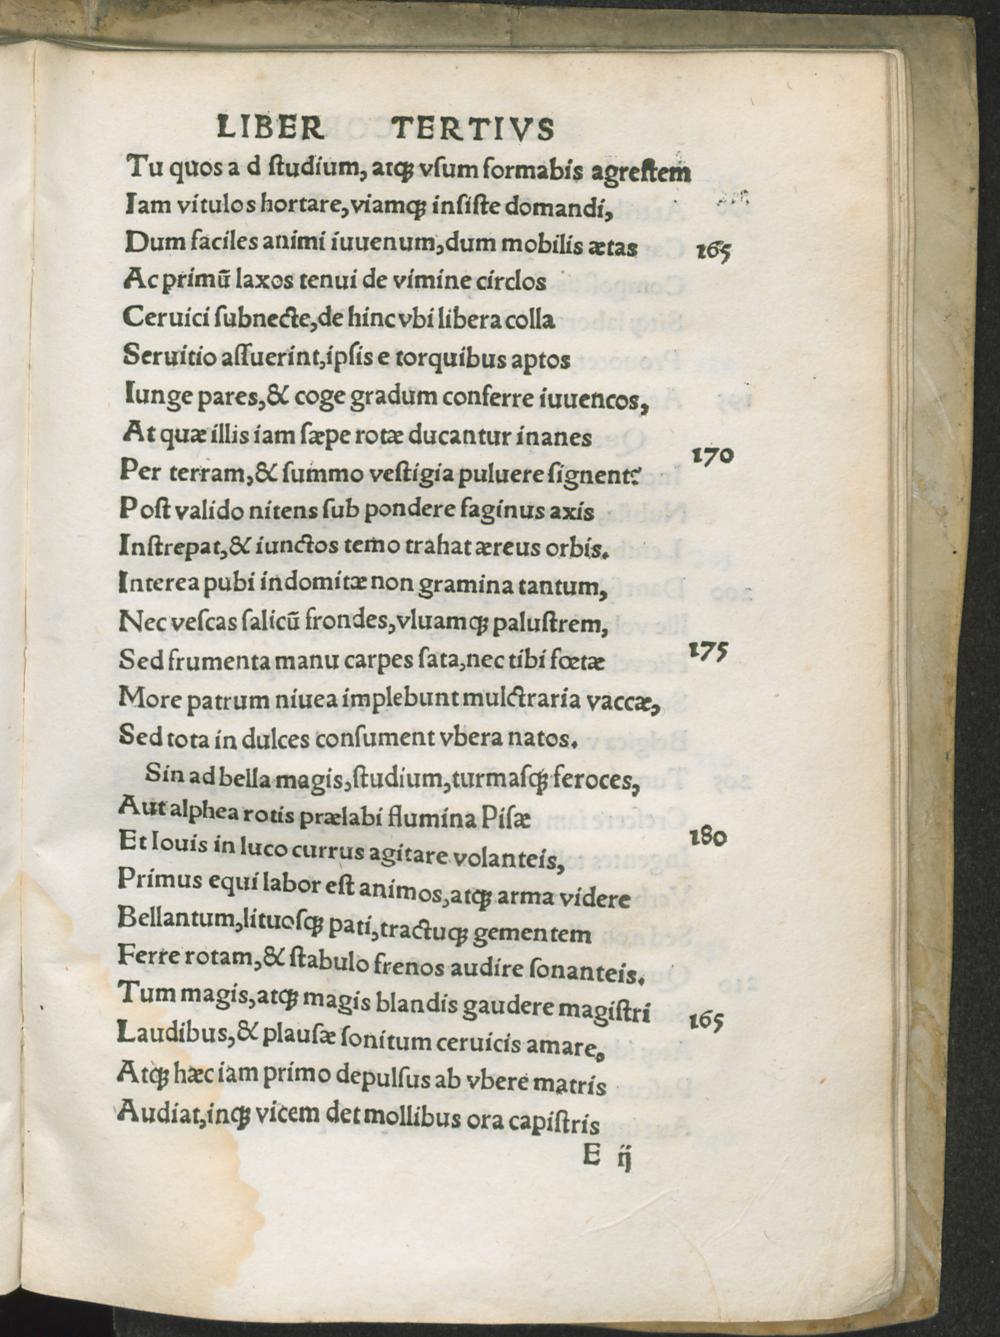 LIBER TERTIVS
Tu quos a d ſtudium, atqꝫ vſum formabis agreſtem
Iam vitulos hortare, viamqꝫ inſiſte domandi,
Dum faciles animi iuuenum, dum mobilis ætas 165
Ac primū laxos tenui de vimine circlos
Ceruici ſubnecte, de hinc vbi libera colla
Seruitio aſſuerint, ipſis e torquibus aptos
Iunge pares, & coge gradum conferre iuuencos,
At quæ illis iam ſæpe rotæ ducantur inanes 170
Per terram, & ſummo veſtigia puluere ſignent:
Poſt valido nitens ſub pondere faginus axis
Inſtrepat, & iunctos temo trahat æreus orbis.
Interea pubi indomitæ non gramina tantum,
Nec veſcas ſalicū frondes, vluamqꝫ paluſtrem, 175
Sed frumenta manu carpes ſata, nec tibi fœtæ
More patrum niuea implebunt mulctraria vaccæ,
Sed tota in dulces conſument vbera natos.
Sin ad bella magis, ſtudium, turmaſqꝫ feroces,
Aut alphea rotis prælabi flumina Piſæ 180
Et Iouis in luco currus agitare volanteis,
Primus equi labor eſt animos, atqꝫ arma videre
Bellantum, lituoſqꝫ pati, tractuqꝫ gementem
Ferre rotam, & ſtabulo frenos audire ſonanteis.
Tum magis, atqꝫ magis blandis gaudere magiſtri 165
Laudibus, & plauſæ ſonitum ceruicis amare,
Atqꝫ hæc iam primo depulſus ab vbere matris
Audiat, inqꝫ vicem det mollibus ora capiſtris
E ij